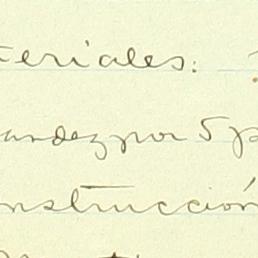 teriales:
andez por 5 p
nstrucción